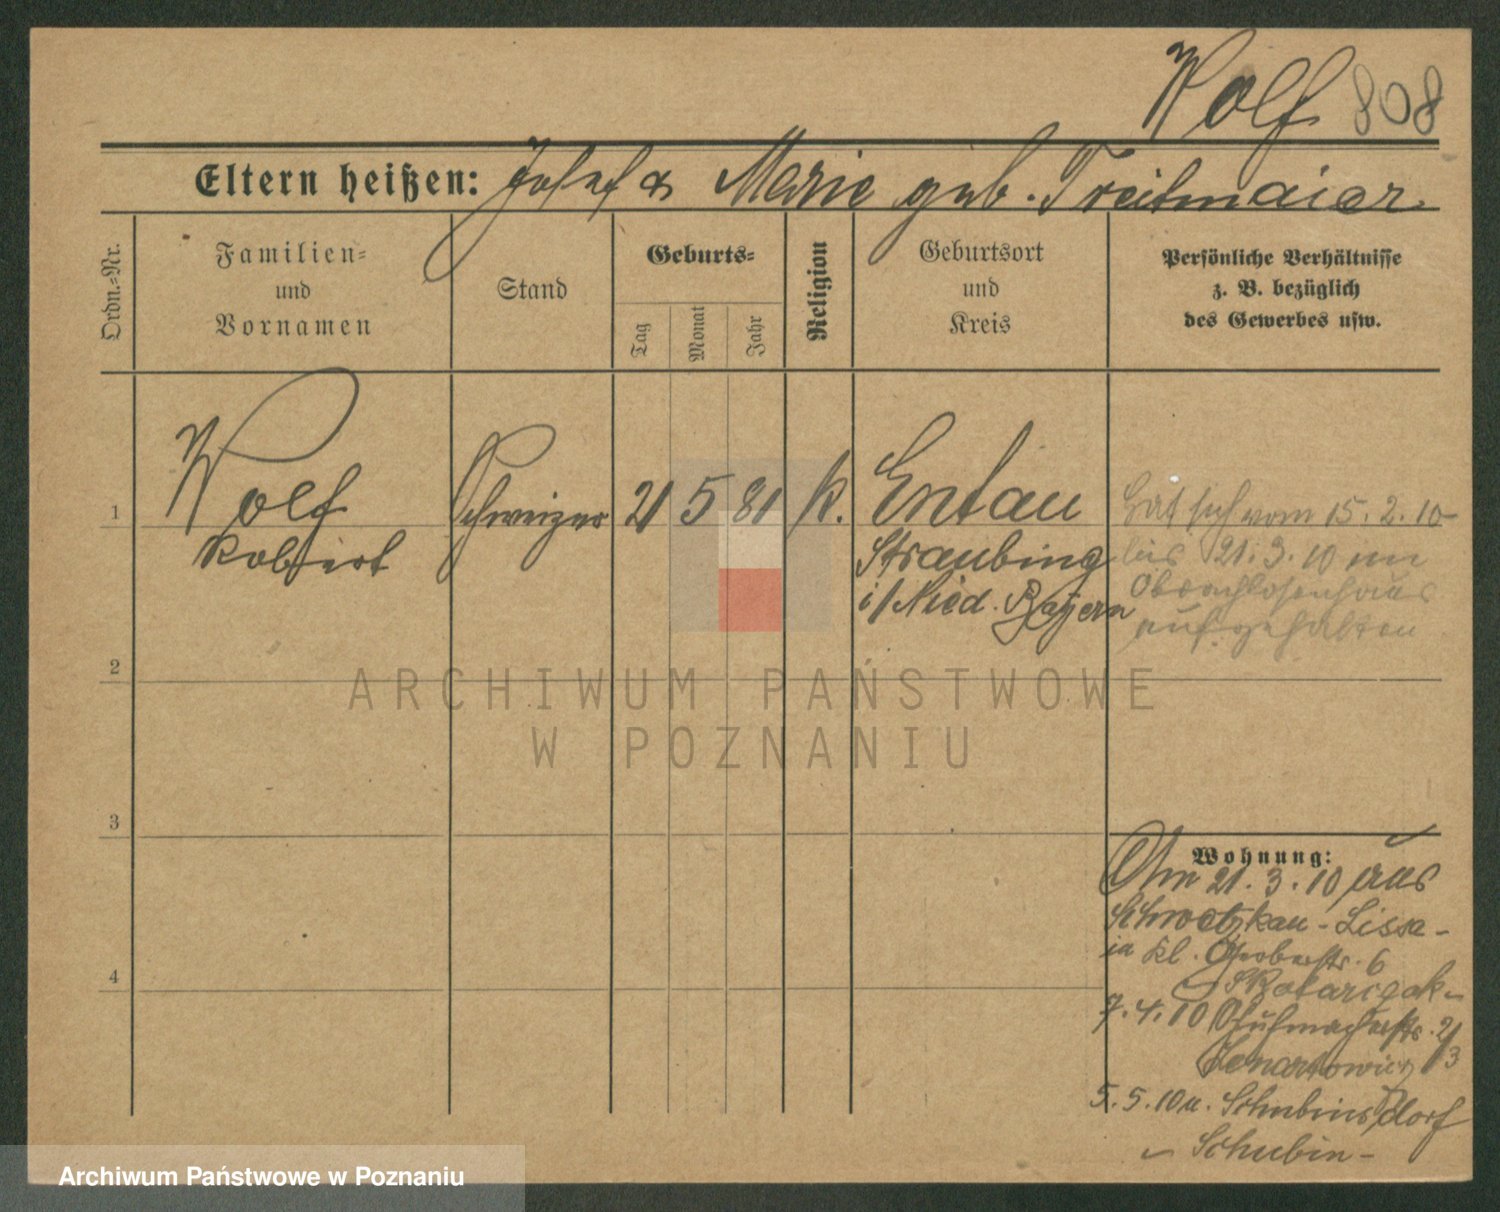 Wolf 808
Eltern heißen: Josef & Marie geb. Treitmaier
Ordn.-Nr.
Familien-
und
Vornamen
Stand
Geburts-
Tag
Monat
Jahr
Religion
Geburtsort
und
Kreis
Persönliche Verhältnisse
z. B. bezüglich
des Gewerbes usw.
1
Wolf
Robert
Schweizer
21 5 81
k.
Entau
Straubing
i/ Nied. Bayern
Hat sich vom 15. 2. 10
bis 21. 3. 10 im
Obdachlosenhaus
aufgehalten
2
3
4
Wohnung:
Am 21. 3. 10 aus
Schwetzkau - Lissa -
in Kl. Gerberstr. 6
7. 4. 10 Schuhmacherstr. 2/3
5. 5. 10 n. Schubinsdorf
Schubin -
ARCHIWUM PAŃSTWOWE
W POZNANIU
Archiwum Państwowe w Poznaniu